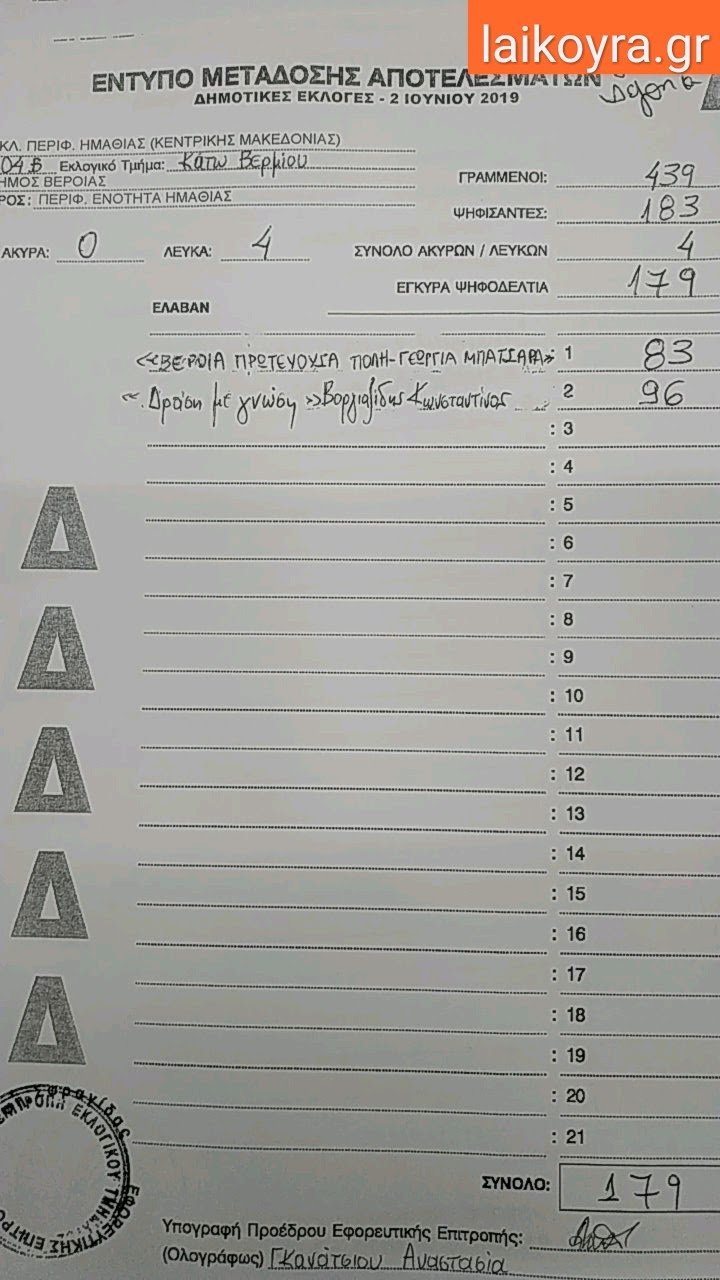 laikoyra.gr
ΕΝΤΥΠΟ ΜΕΤΑΔΟΣΗΣ ΑΠΟΤΕΛΕΣΜΑΤΩΝ
ΔΗΜΟΤΙΚΕΣ ΕΚΛΟΓΕΣ - 2 ΙΟΥΝΙΟΥ 2019
ΚΛ. ΠΕΡΙΦ. ΗΜΑΘΙΑΣ (ΚΕΝΤΡΙΚΗΣ ΜΑΚΕΔΟΝΙΑΣ)
04 Β Εκλογικό Τμήμα: Κάτω Βερμίου
ΗΜΟΣ ΒΕΡΟΙΑΣ
ΡΟΣ: ΠΕΡΙΦ. ΕΝΟΤΗΤΑ ΗΜΑΘΙΑΣ
ΓΡΑΜΜΕΝΟΙ: 439
ΨΗΦΙΣΑΝΤΕΣ: 183
ΑΚΥΡΑ: 0 ΛΕΥΚΑ: 4 ΣΥΝΟΛΟ ΑΚΥΡΩΝ / ΛΕΥΚΩΝ 4
ΕΓΚΥΡΑ ΨΗΦΟΔΕΛΤΙΑ 179
ΕΛΑΒΑΝ
«ΒΕΡΟΙΑ ΠΡΩΤΕΥΟΥΣΑ ΠΟΛΗ-ΓΕΩΡΓΙΑ ΜΠΑΤΣΑΡΑ» : 1 83
«Δράση με γνώση» Βοργιαζίδης Κωνσταντίνος 2 96
: 3
: 4
: 5
: 6
: 7
: 8
: 9
: 10
: 11
: 12
: 13
: 14
: 15
: 16
: 17
: 18
: 19
: 20
: 21
Δ
Δ
Δ
Δ
Δ
ΣΥΝΟΛΟ: 179
Υπογραφή Προέδρου Εφορευτικής Επιτροπής:
(Ολογράφως) Γκανάτσιου Αναστασία
σφραγίδας
ΕΚΛΟΓΙΚΟΥ
ΕΦΟΡΕΥΤΙΚΗΣ